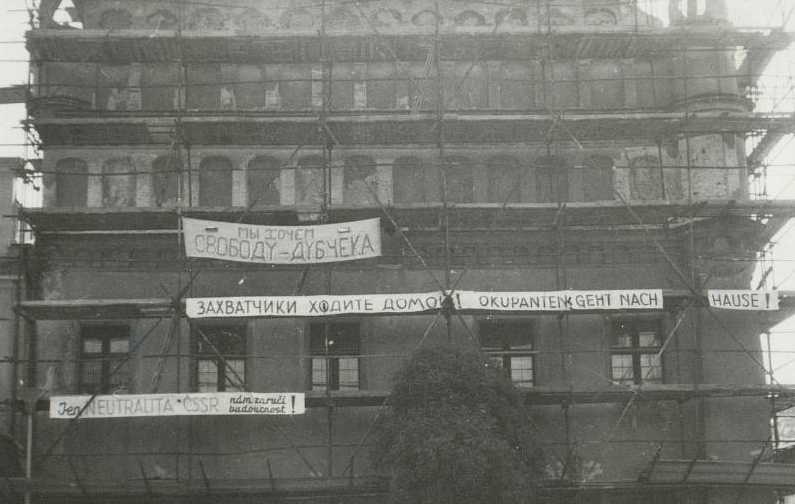 МЫ ХОЧЕМ
СВОБОДУ – ДУБЧЕКА
ЗАХВАТЧИКИ ХОДИТЕ ДОМОЙ! OKUPANTEN GEHT NACH HAUSE!
Jen NEUTRALITA ČSSR nám zaručí
budoucnost!